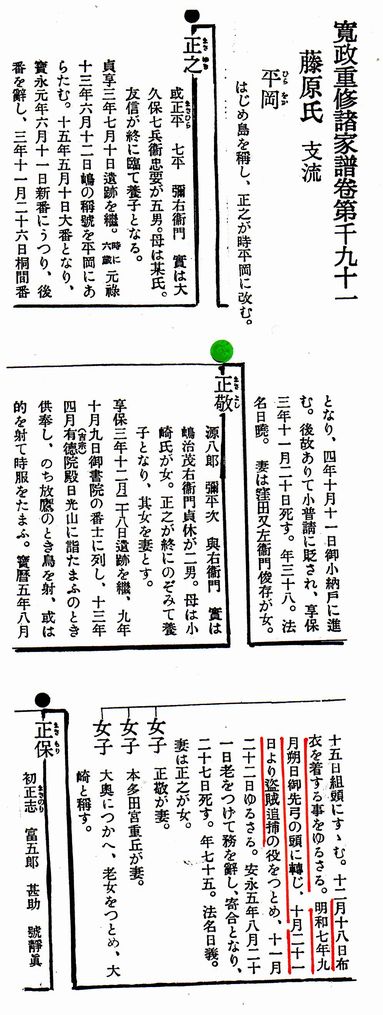 寛政重修諸家譜卷第千九十一
藤原氏 支流
平岡
ひらをか
はじめ島を稱し、正之が時平岡に改む。
正之
まさゆき
或正平 七平 彌右衞門 實は大
まさひら
久保七兵衞忠要が五男。母は某氏。
友信が終に臨て養子となる。
貞享三年七月十日遺跡を繼。時に六歲 元祿
十三年六月十二日嶋の稱號を平岡にあ
らたむ。十五年五月十日大番となり、
寶永元年六月十一日新番にうつり、後
番を辭し、三年十一月二十六日桐間番
となり、四年十月十一日御小納戸に進
む。後故ありて小普請に貶され、享保
三年十一月二十日死す。年三十八。法
名日曉。 妻は窪田又左衞門俊存が女。
正敬
まさよし
源八郎 彌平次 與右衞門 實は
嶋治茂右衞門貞休が二男。母は小
崎氏が女。正之が終にのぞみて養
子となり、其女を妻とす。
享保三年十二月二十八日遺跡を繼、九年
十月九日御書院の番士に列し、十三年
四月有德院殿日光山に詣たまふのとき
(吉宗)
供奉し、のち放鷹のとき鳥を射、或は
的を射て時服をたまふ。寶曆五年八月
十五日組頭にすゝむ。十二月十八日布
衣を着する事をゆるさる。明和七年九
月朔日御先弓の頭に轉じ、十月二十一
日より盜賊追捕の役をつとめ、十一月
二十二日ゆるさる。安永五年八月二十
一日老をつげて務を辭し、寄合となり、
二十七日死す。年七十五。法名日義。
妻は正之が女。
女子 正敬が妻。
女子 本多田宮重丘が妻。
女子 大奧につかへ、老女をつとめ、大
崎と稱す。
正保
まさもり
初正志 富五郎 甚助 號靜眞
まさのり